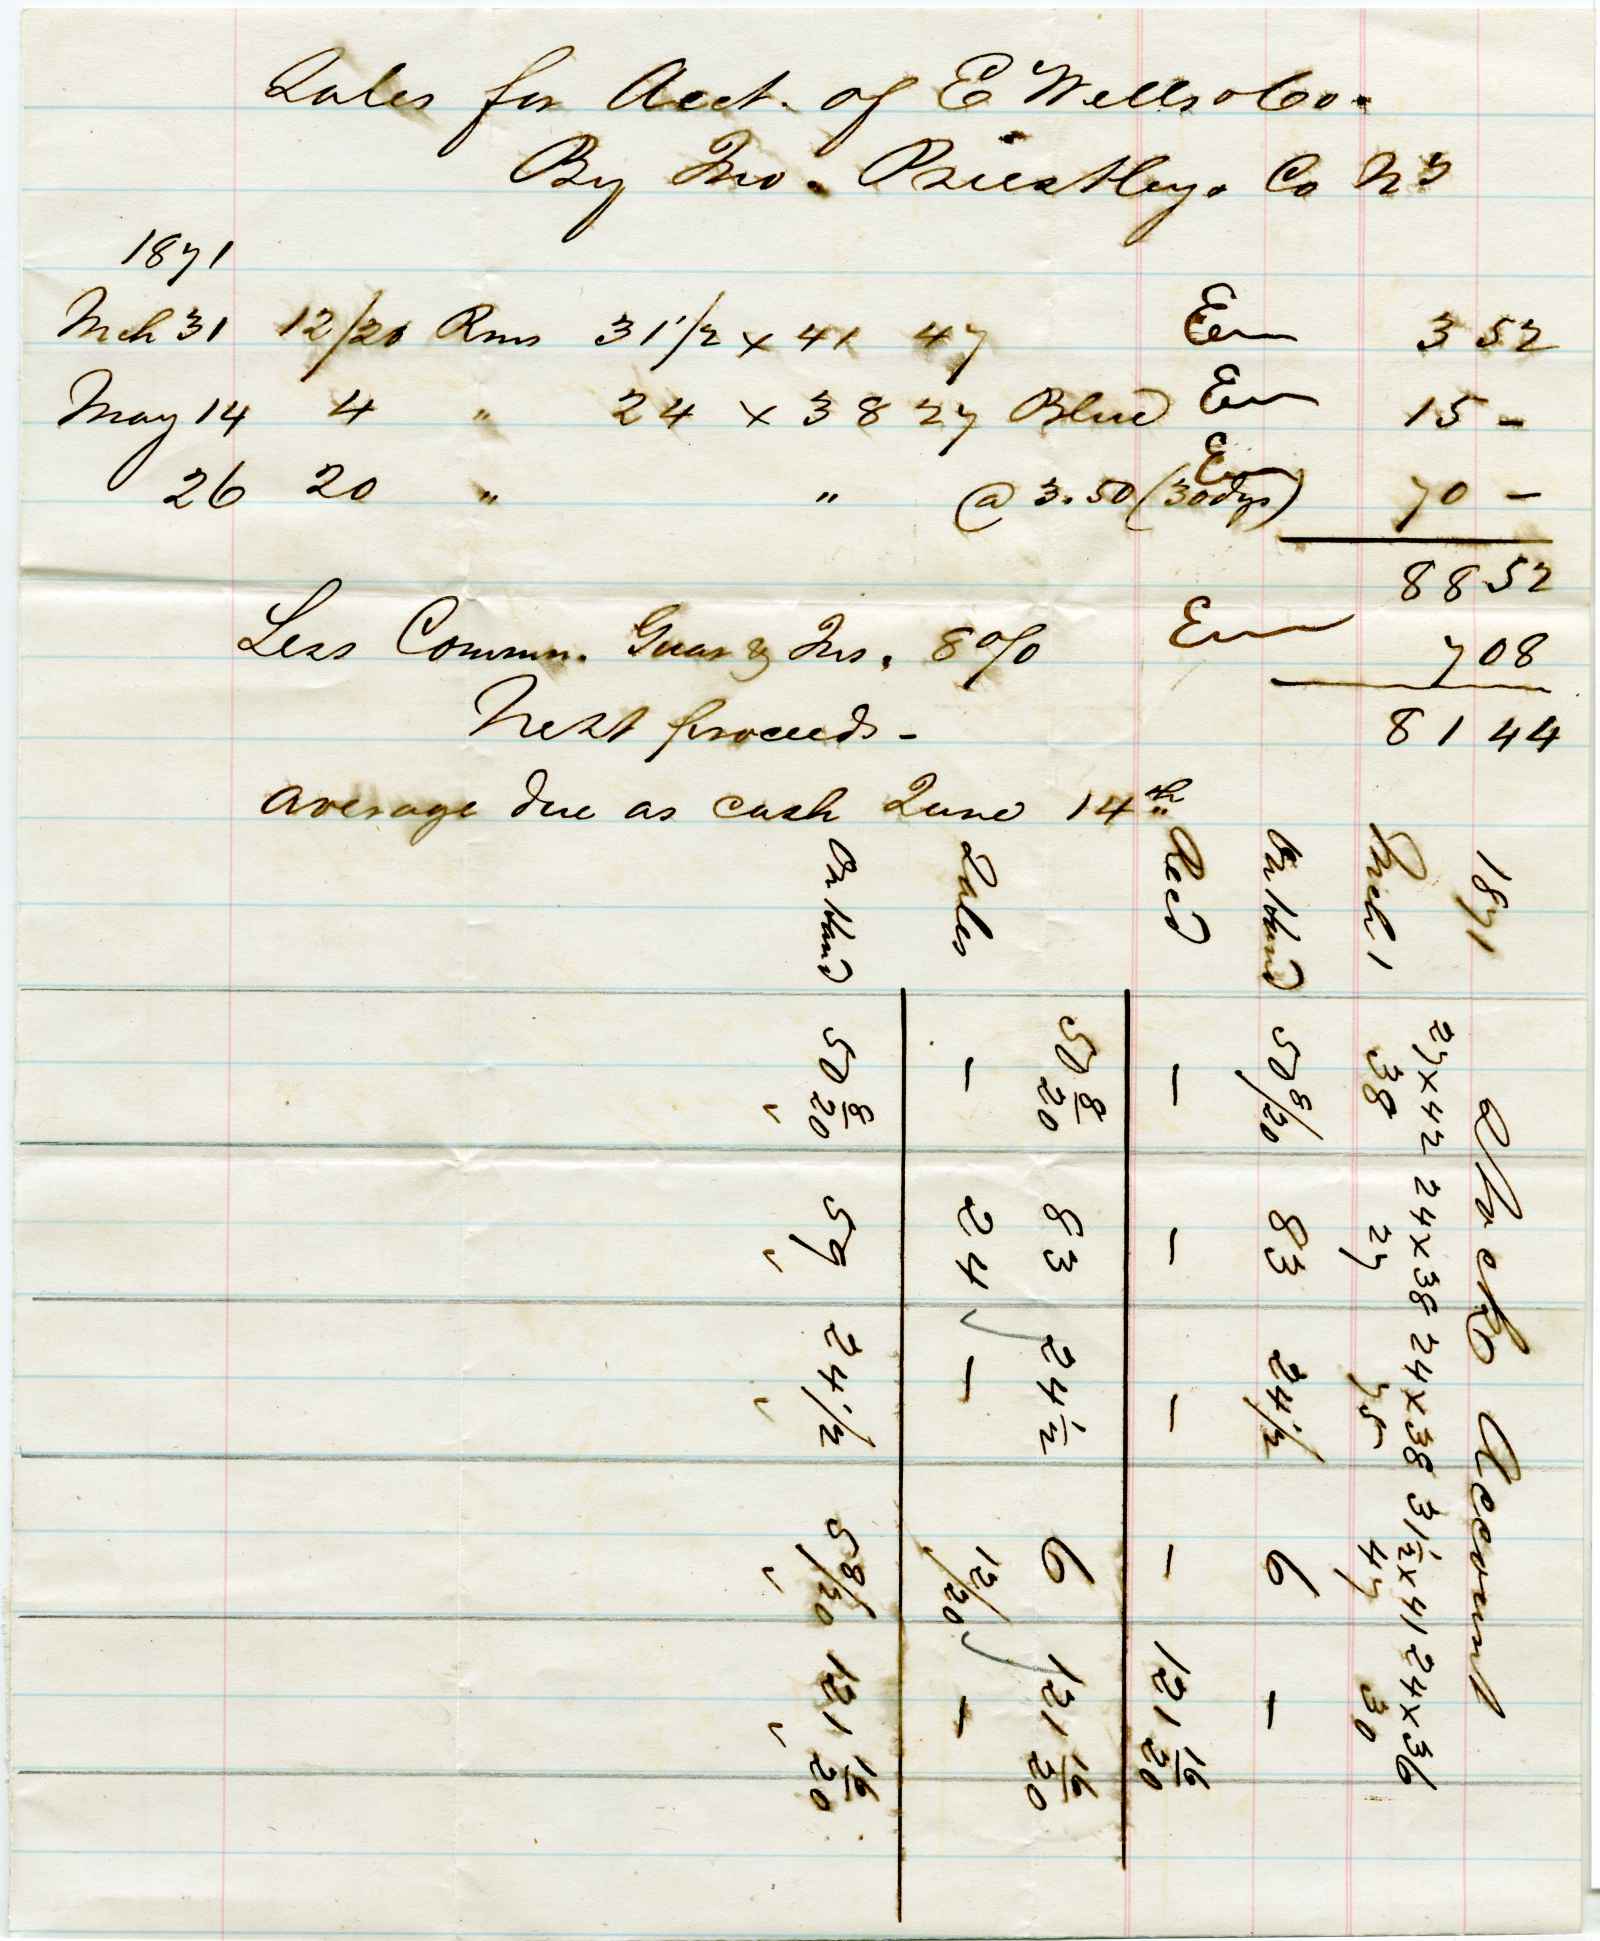 Sales for Acct. of E Wells & Co.
By Jno. Priestley & Co N Y
1871
Mch 31 12/20 Rms 31 1/2 x 41 47 3 52
May 14 4 " 24 x 38 27 Blue 15 -
26 20 " " @ 3.50 (30dys) 70 -
88 52
Less Commn. Guar & Ins. 8% 7 08
Nett proceeds - 81 44
Average due as cash June 14th
Stock Account
1871 27x42 24x38 24x38 31 1/2 x 41 24x36
Mch 1 38 27 75 47 30
On Hand 50 8/20 83 24 1/2 6 -
Recd - - - - 121 16/20
50 8/20 83 24 1/2 6 121 16/20
Sales - 24 - 12/20 -
On Hand 50 8/20 59 24 1/2 5 8/20 121 16/20